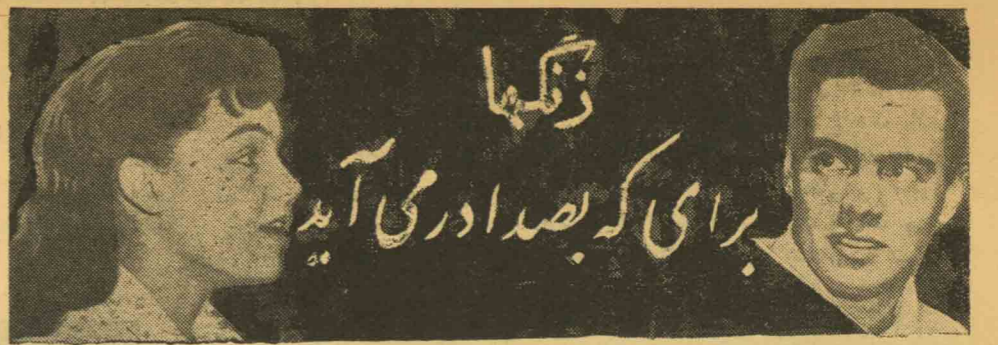 زنگها
برای که بصدا در می آید